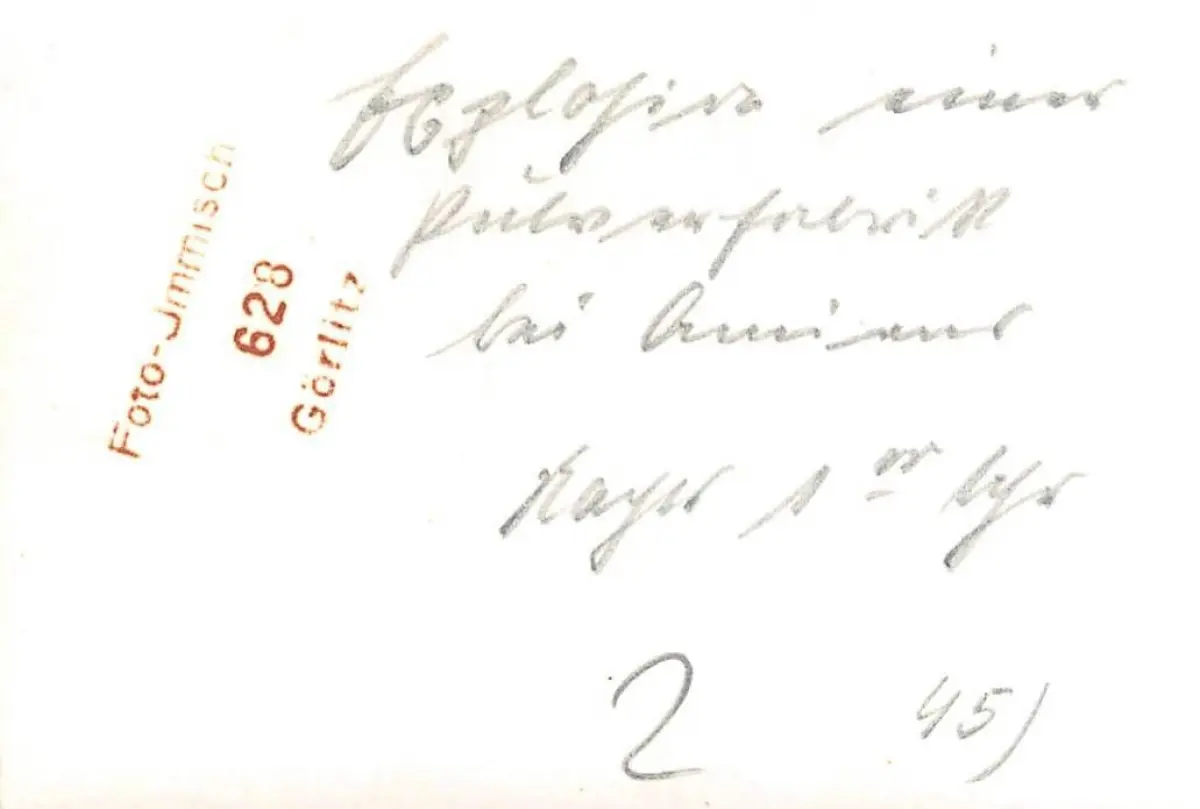 Foto-Jmmisch
628
Görlitz
Explosion einer
Pulverfabrik
bei Amiens
1 Uhr
2
45)